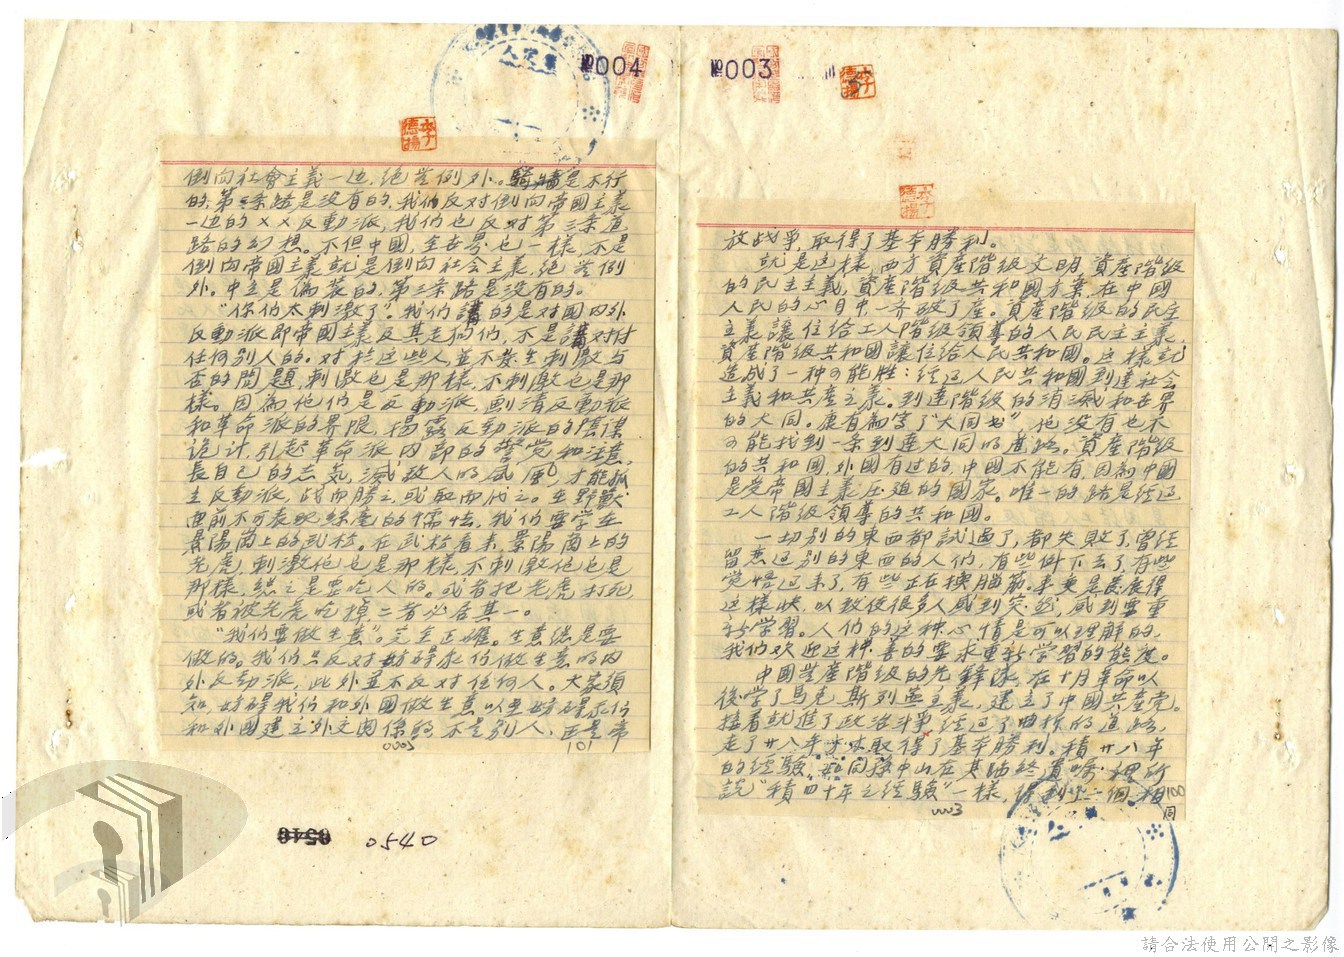 №003
放战爭,取得了基本勝利。
就是这樣,西方資產階級文明,資產階級
的民主主義,資產階級共和國方案,在中國
人民的心目中一齐破了產。資產階級的民主
主義讓位給工人階級領導的人民民主主義,
資產階級共和國讓位給人民共和國。这樣就
造成了一种可能性:经过人民共和國到達社会
主義和共產主義。到達階級的消滅和世界
的大同。康有為寫了"大同书",他沒有也不
可能找到一条到達大同的道路。資產階級
的共和國,外國有过的,中國不能有,因為中國
是受帝國主義压迫的國家。唯一的路是经过
工人階級領導的共和國。
一切别的東西都試過了,都失敗了,曾经
留恋过别的東西的人们,有些倒下去了,有些
覺悟过来了,有些正在換腦筋。事变是發展得
这樣快,以致使很多人感到突然,感到要重
新学習。人们的这种心情是可以理解的,
我们欢迎这种善的要求重新学習的態度。
中國無產階級的先鋒隊,在十月革命以
後学了馬克斯列寧主義,建立了中國共產党。
接着就進了政治斗爭,经过了曲折的道路,
走了廿八年,才取得了基本勝利。積廿八年
的经驗,如同孫中山在其臨終遺嘱裡所
說"積四十年之经驗"一樣,得到了一個相
100
同
0003
№004
倒向社會主義一边,绝無例外。騎墙是不行
的,第三条路是没有的。我们反对倒向帝國主義
一边的××反動派,我们也反对第三条道
路的幻想。不但中國,全世界也一樣,不是
倒向帝國主義就是倒向社会主義,绝無例
外。中立是偽装的,第三条路是没有的。
"你们太刺激了"。我们講的是对國内外
反動派即帝國主義及其走狗们,不是講对付
任何别人的。对於这些人並不發生刺激与
否的問題,刺激也是那樣,不刺激也是那
樣。因為他们是反動派,劃清反動派
和革命派的界限,揭露反動派的陰謀
詭计,引起革命派内部的警觉和注意,
長自己的志氣,滅敌人的威風,才能孤
立反動派,战而勝之,或取而代之。在野獸
面前不可表現絲毫的懦怯,我们要学在
景陽崗上的武松。在武松看来,景陽崗上的
老虎,刺激他也是那樣,不刺激他也是
那樣,総之是要吃人的。或者把老虎打死,
或者被老虎吃掉二者必居其一。
"我们要做生意"。完全正確。生意総是要
做的。我们只反对妨碍我们做生意的内
外反动派,此外並不反对任何人。大家須
知,妨碍我们和外國做生意以至妨碍我们
和外國建立外交関係的,不是别人,正是帝
0003
101
0540
請合法使用公開之影像